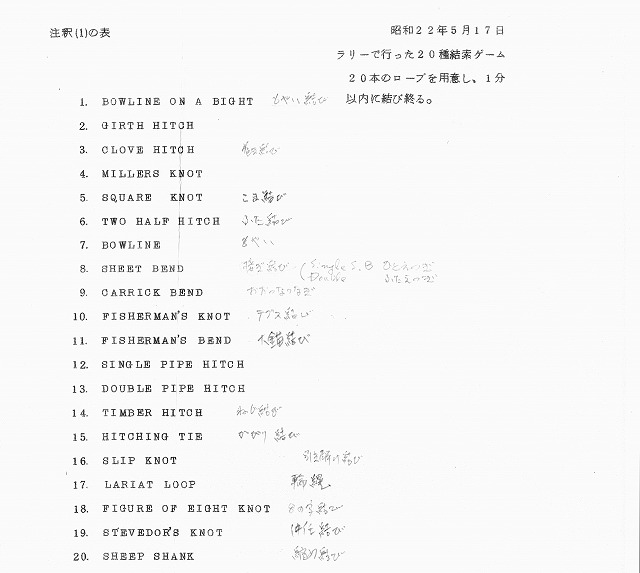 注釈(1)の表
昭和22年5月17日
ラリーで行った20種結索ゲーム
20本のロープを用意し、1分
以内に結び終る。
1. BOWLINE ON A BIGHT もやい結び
2. GIRTH HITCH
3. CLOVE HITCH
4. MILLERS KNOT
5. SQUARE KNOT こま結び
6. TWO HALF HITCH ふた結び
7. BOWLINE もやい
8. SHEET BEND 接ぎ結び (Single S.B ひとえつぎ
Double ふたえつぎ
9. CARRICK BEND
10. FISHERMAN'S KNOT テグス結び
11. FISHERMAN'S BEND 錨結び
12. SINGLE PIPE HITCH
13. DOUBLE PIPE HITCH
14. TIMBER HITCH ねじ結び
15. HITCHING TIE かがり結び
16. SLIP KNOT 引き解け結び
17. LARIAT LOOP 輪縄
18. FIGURE OF EIGHT KNOT 8の字結び
19. STEVEDOR'S KNOT 仲仕結び
20. SHEEP SHANK 縮め結び